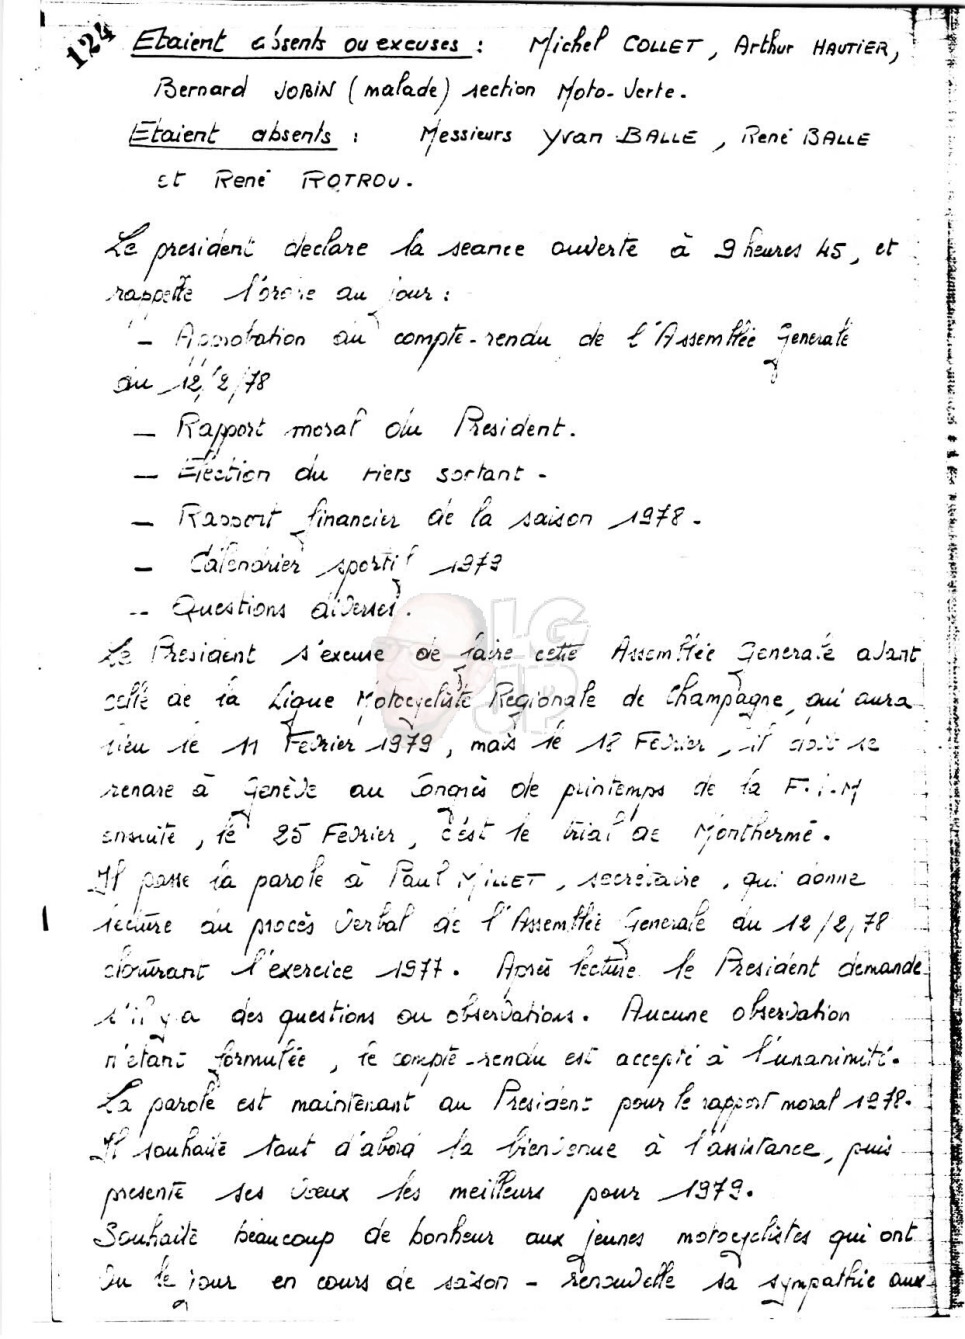 124
Etaient absents ou excuses : Michel COLLET, Arthur HAUTIER,
Bernard JOBIN (malade) section Moto-Verte.
Etaient absents : Messieurs Yvan BALLE, René BALLE
et René ROTROU.
Le president declare la seance ouverte à 9 heures 45, et
rappelle l'ordre du jour :
- Approbation du compte-rendu de l'Assemblée Generale
du 12/2/78
- Rapport moral du President.
- Election du tiers sortant -
- Rapport financier de la saison 1978.
- Calendrier sportif 1979
-- Questions diverses.
Le President s'excuse de faire cette Assemblée Generale avant
celle de la Ligue Motocycliste Regionale de Champagne, qui aura
lieu le 11 Fevrier 1979, mais le 18 Fevrier, il doit se
rendre à Genève au Congrès de printemps de la F.I.M
ensuite, le 25 Fevrier, c'est le trial de Monthermé.
Il passe la parole à Paul MILLET, secrétaire, qui donne
lecture du procès verbal de l'Assemblée Generale du 12/2/78
cloturant l'exercice 1977. Après lecture le President demande
s'il y a des questions ou observations. Aucune observation
n'etant formulée, le compte-rendu est accepté à l'unanimité.
La parole est maintenant au President pour le rapport moral 1978.
Il souhaite tout d'abord la bienvenue à l'assistance, puis
presente ses voeux les meilleurs pour 1979.
Souhaite beaucoup de bonheur aux jeunes motocyclistes qui ont
vu le jour en cours de saison - renouvelle sa sympathie aux
LG
JP